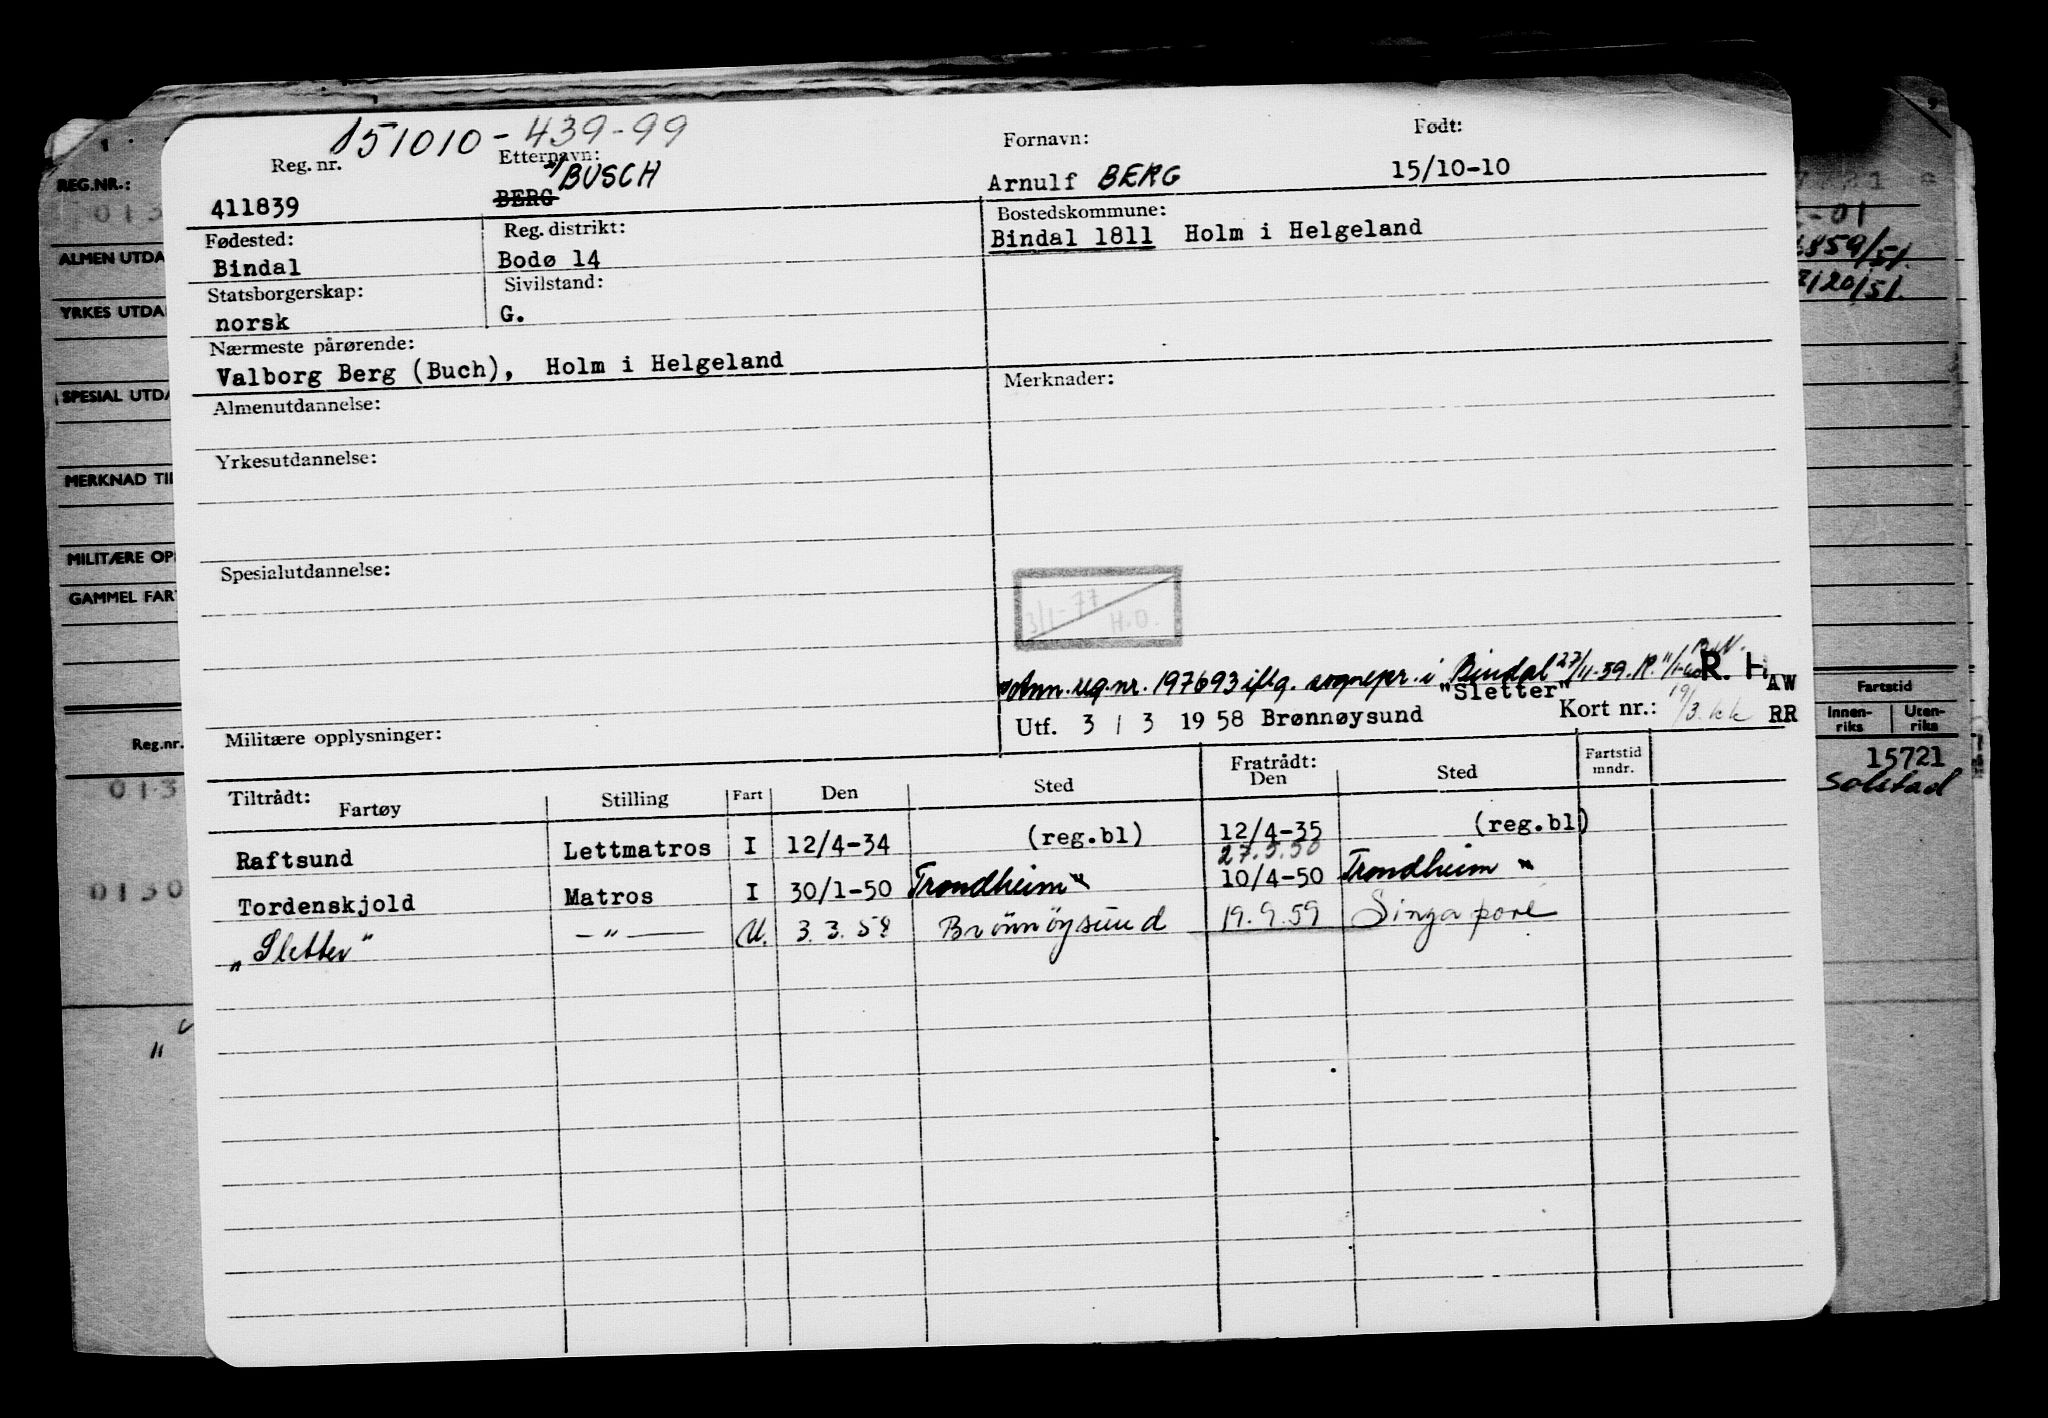 151010-439-99
Reg. nr. Etternavn: Fornavn: Født:
411839 BERG BUSCH Arnulf BERG 15/10-10
Fødested: Reg. distrikt: Bostedskommune:
Bindal Bodø 14 Bindal 1811 Holm i Helgeland
Statsborgerskap: Sivilstand:
norsk G.
Nærmeste pårørende:
Valborg Berg (Buch), Holm i Helgeland
Merknader:
Almenutdannelse:
Yrkesutdannelse:
Spesialutdannelse:
3/1-77
H.O.
Ann. reg.nr. 197693 iflg. sognepr. i Bindal 27/11-59. R. R. H AW
"Sletter"
Utf. 3 / 3 1958 Brønnøysund Kort nr.: 19/3. kk RR
Militære opplysninger:
Tiltrådt: Fratrådt:
Fartøy Stilling Fart Den Sted Den Sted Fartstid mndr.
Raftsund Lettmatros I 12/4-34 (reg.bl) 12/4-35 (reg.bl)
Tordenskjold Matros I 30/1-50 Trondheim " 10/4-50 Trondheim "
"Sletter" -"- U. 3.3.58 Brönnöysund 19.9.59 Singapore
REG.NR.:
013
ALMEN UTDA
YRKES UTDA
SPESIAL UTDA
MERKNAD TIL
MILITÆRE OP
GAMMEL FAR
Reg.nr.
013
0130
"
-01
859/51.
2120/51.
Fartstid
Innen-riks Uten-riks
15721
Solstad